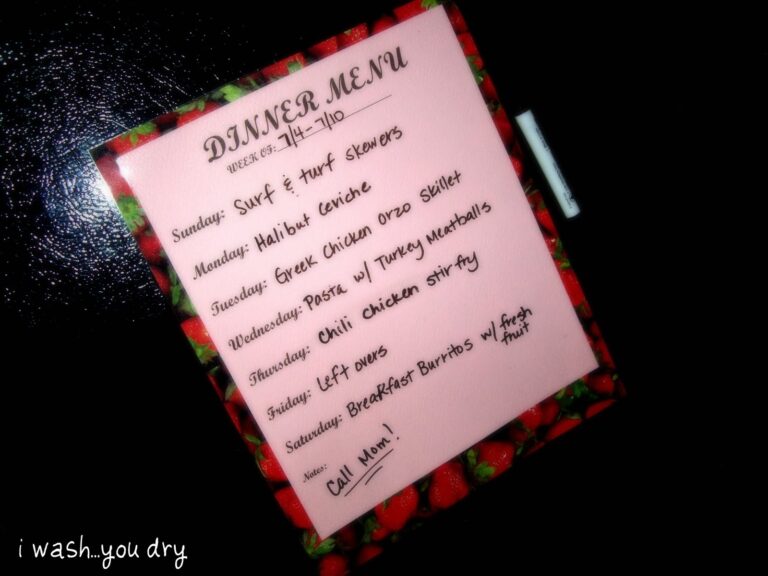 DINNER MENU
WEEK OF: 7/4-7/10
Sunday: Surf & turf skewers
Monday: Halibut Ceviche
Tuesday: Greek Chicken Orzo Skillet
Wednesday: Pasta w/ Turkey Meatballs
Thursday: Chili chicken stir fry
Friday: Left overs
Saturday: Breakfast Burritos w/ fresh
fruit
Notes:
Call Mom!
i wash...you dry